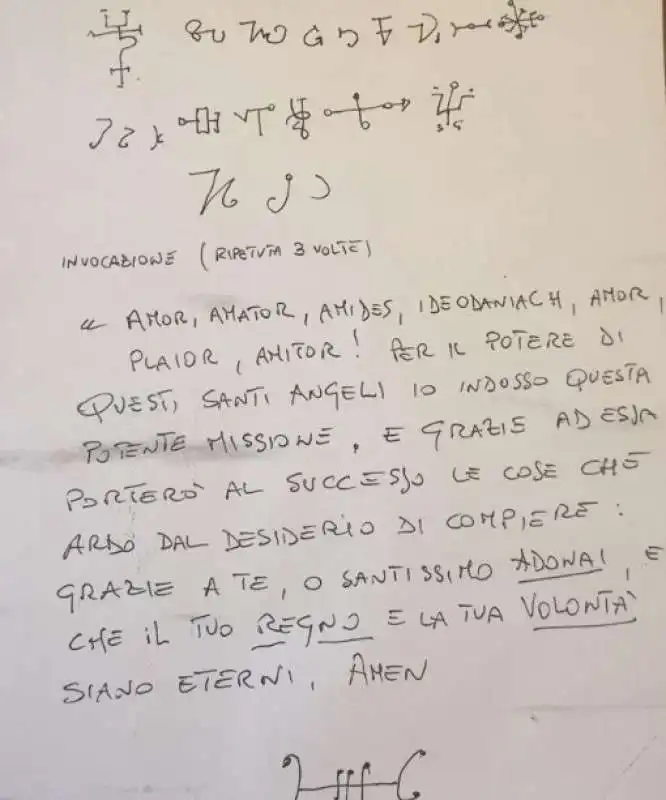 INVOCAZIONE (RIPETUTA 3 VOLTE)
" AMOR, AMATOR, AMIDES, IDEODANIACH, AMOR,
PLAIOR, AMITOR! PER IL POTERE DI
QUESTI SANTI ANGELI IO INDOSSO QUESTA
POTENTE MISSIONE, E GRAZIE AD ESSA
PORTERÒ AL SUCCESSO LE COSE CHE
ARDO DAL DESIDERIO DI COMPIERE:
GRAZIE A TE, O SANTISSIMO ADONAI, E
CHE IL TUO REGNO E LA TUA VOLONTÀ
SIANO ETERNI, AMEN